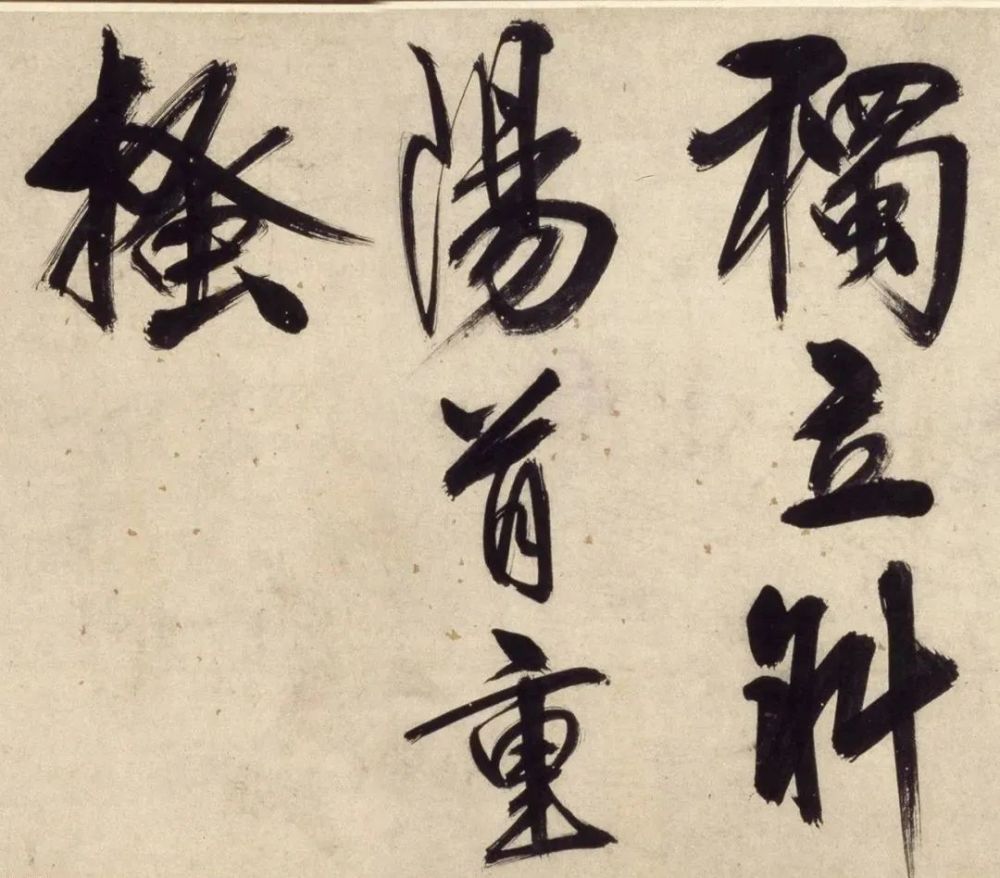 獨立斜
陽首重
搔